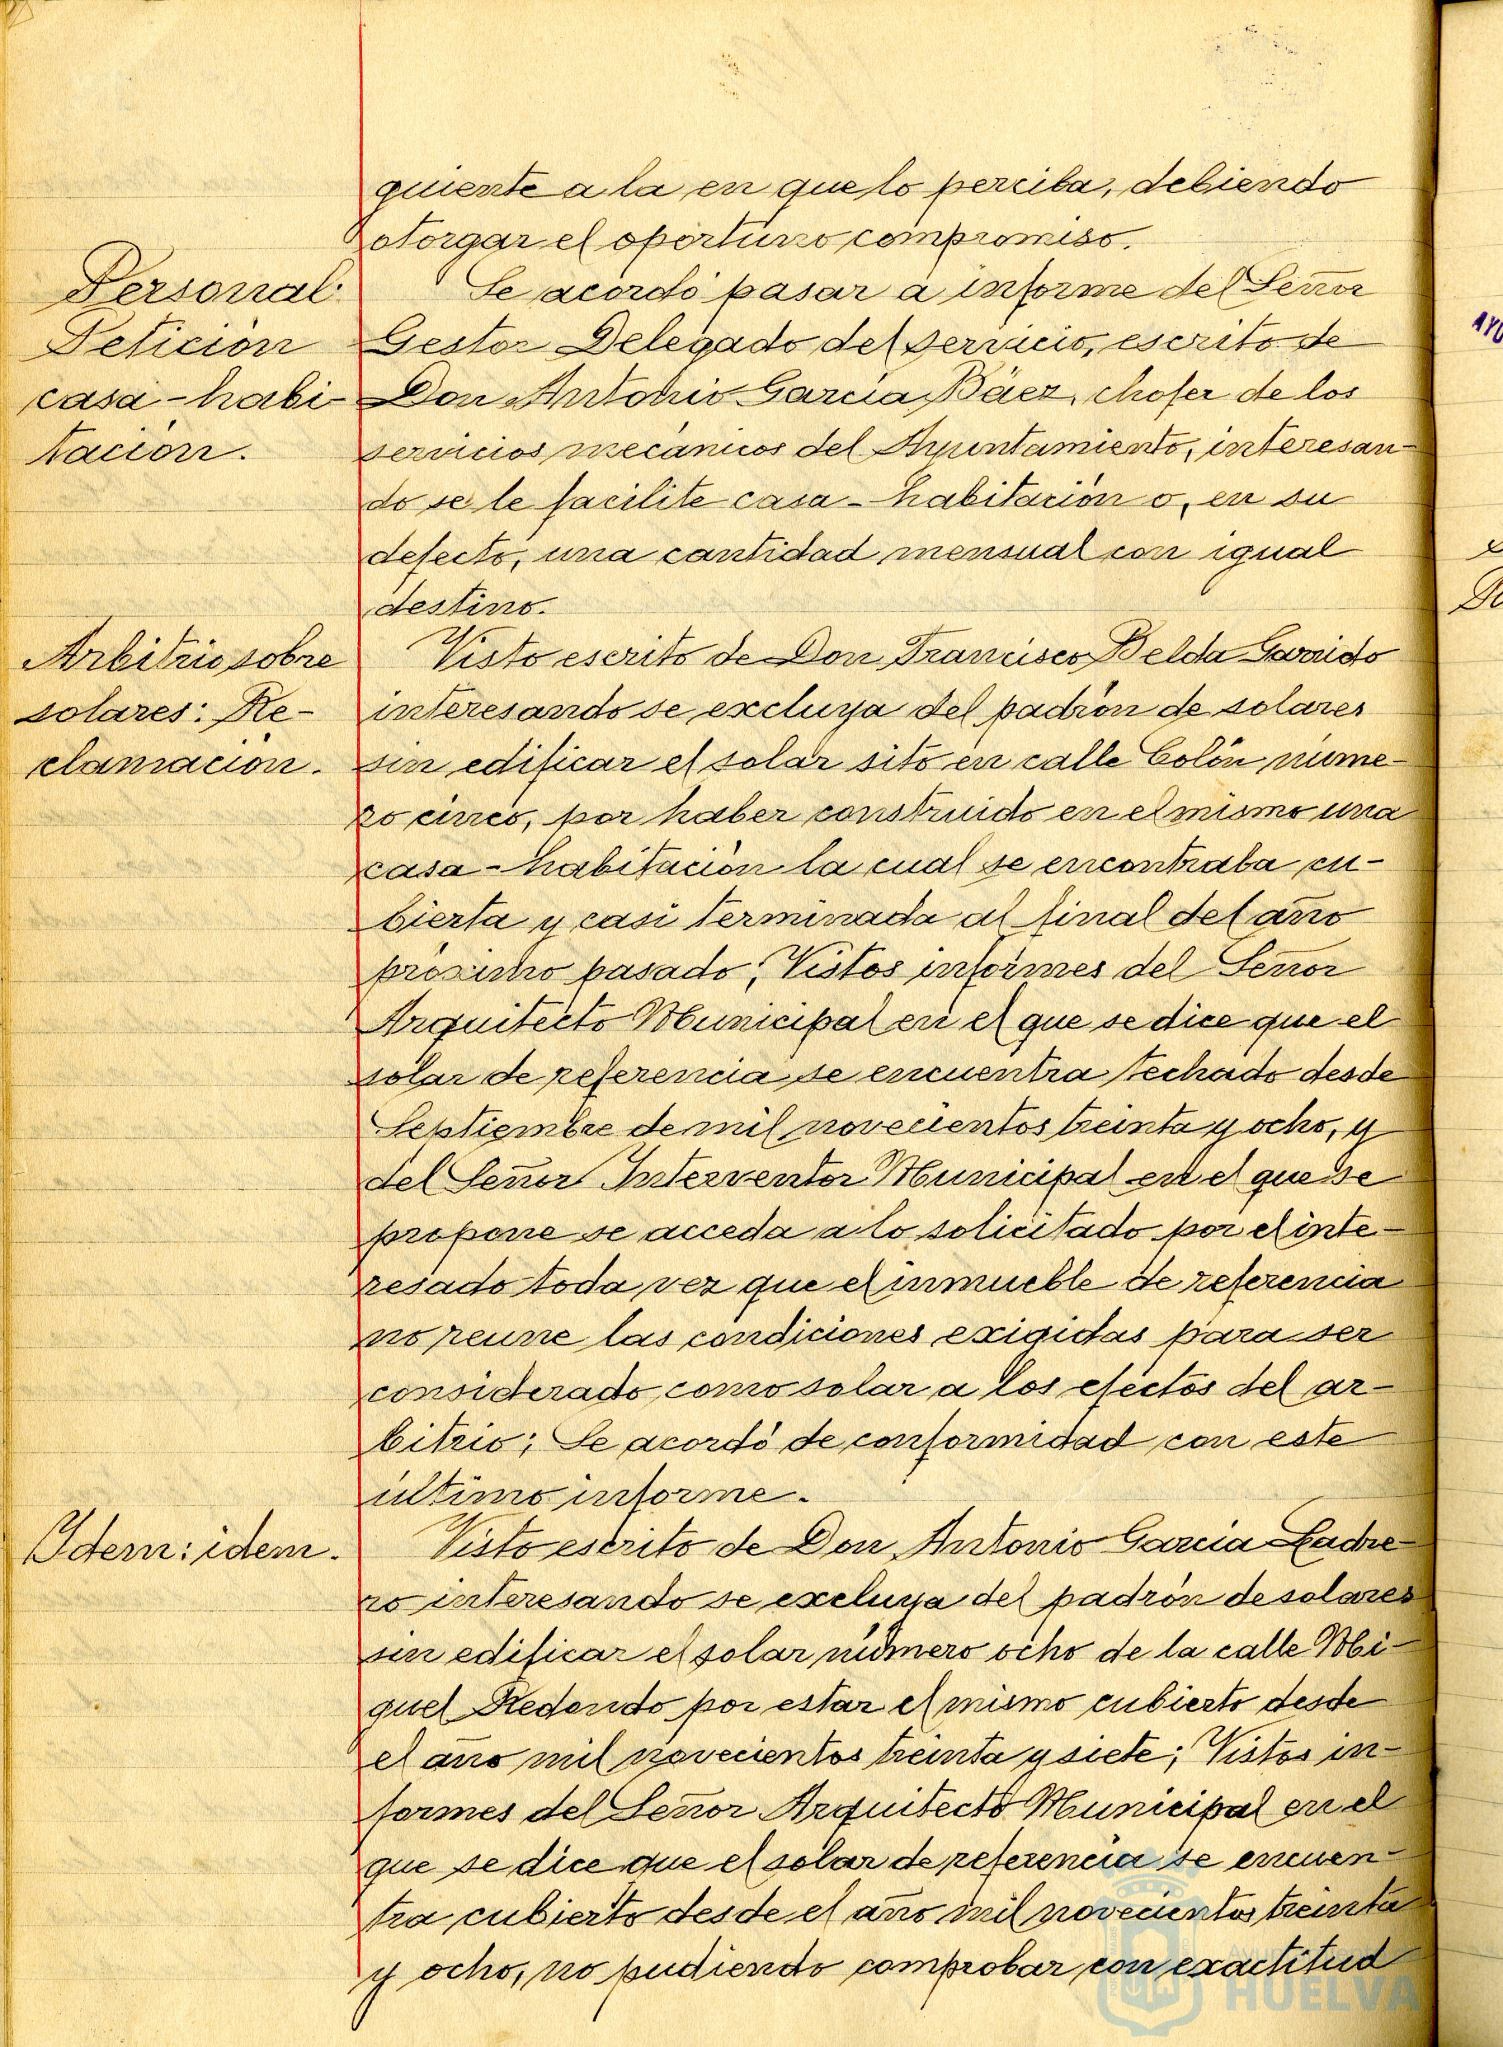 guiente a la en que lo perciba, debiendo
otorgar el oportuno compromiso.
Personal:
Petición
casa-habi-
tación.
Se acordó pasar a informe del Señor
Gestor Delegado del servicio, escrito de
Don Antonio García Báez, chofer de los
servicios mecánicos del Ayuntamiento, interesan-
do se le facilite casa-habitación o, en su
defecto, una cantidad mensual con igual
destino.
Arbitrio sobre
solares: Re-
clamación.
Visto escrito de Don Francisco Belda Garrido
interesando se excluya del padrón de solares
sin edificar el solar sito en calle Colón núme-
ro cinco, por haber construido en el mismo una
casa-habitación la cual se encontraba cu-
bierta y casi terminada al final del año
próximo pasado; Vistos informes del Señor
Arquitecto Municipal en el que se dice que el
solar de referencia se encuentra techado desde
Septiembre de mil novecientos treinta y ocho, y
del Señor Interventor Municipal en el que se
propone se acceda a lo solicitado por el inte-
resado toda vez que el inmueble de referencia
no reune las condiciones exigidas para ser
considerado como solar a los efectos del ar-
bitrio; Se acordó de conformidad con este
último informe.
Idem: idem.
Visto escrito de Don Antonio García Ladre-
ro interesando se excluya del padrón de solares
sin edificar el solar número ocho de la calle Mi-
guel Redondo por estar el mismo cubierto desde
el año mil novecientos treinta y siete; Vistos in-
formes del Señor Arquitecto Municipal en el
que se dice que el solar de referencia se encuen-
tra cubierto desde el año mil novecientos treinta
y ocho, no pudiendo comprobar con exactitud
HUELVA